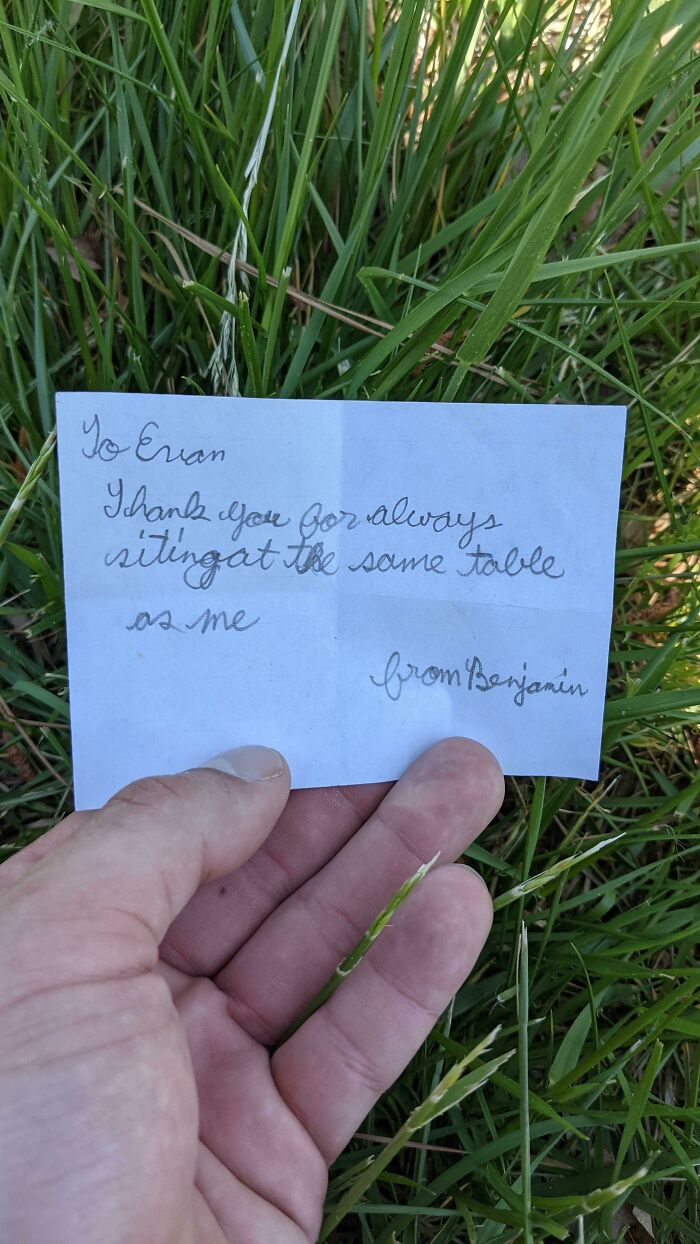 To Evan
Thank you for always
siting at the same table
as me
from Benjamin